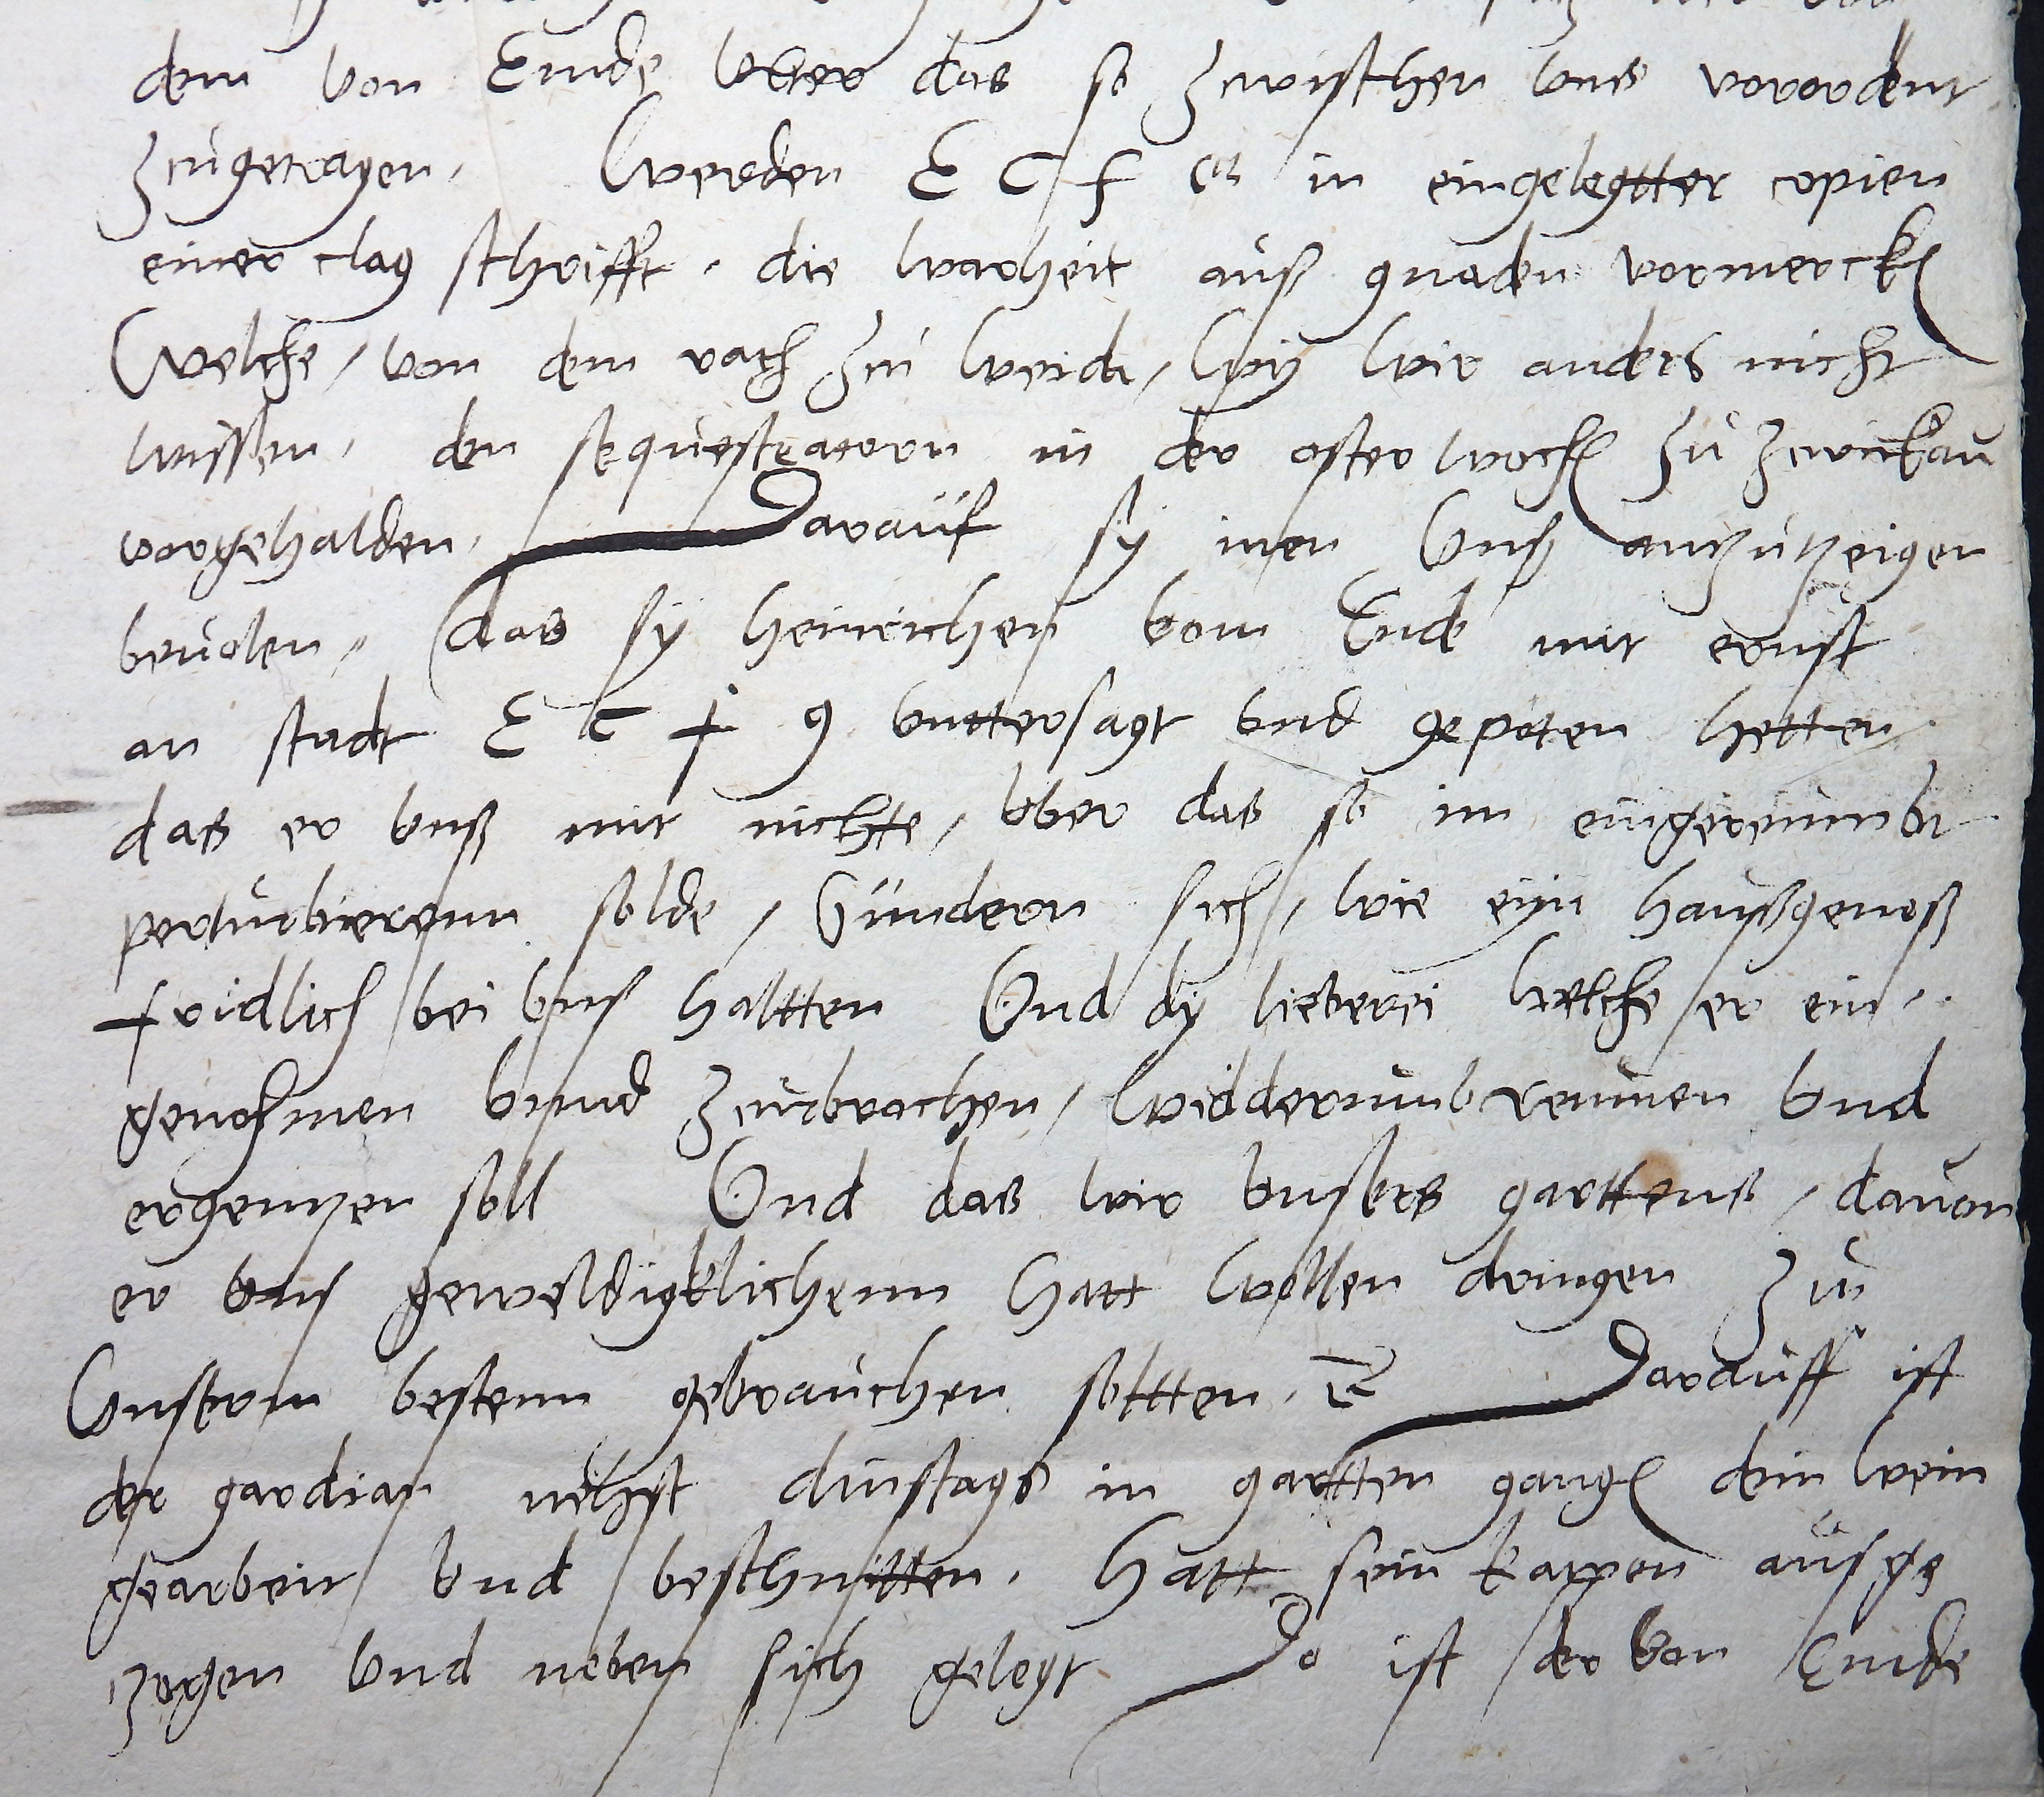 dem von Ende vber das so zwischen vns verordent
zugetragen, Werden E C F G in eingelegtter copien
einer clag schrifft, die warheit auß gnaden vormerck
Welche, von dem rath zu weida, wy wir anders nicht
wissen, den sequestratorn in der osterwoch zu zwickau
vorgehalden, Darauf sy inen Vnß antzutzeigen
beuolen, das sy heinrichen vom Ende mit ernst
an stadt E C F G vnttersagt vnd gepoten hetten
das er vnß mit nichte, vber das so im eingereumbt
perturbierenn solde, Sundern sich, wie eyn haußgenoß
fridlich bei vns haltten Vnd dy lieberei welche er ein,
genohmen vnnd zurbrochen, widderumb reumen Vnd
ergentzen soll Vnd das wir vnsers garttens, dauon
er vns geweldigklichenn hatt wollen dringen zu
Vnserm bestenn gebrauchen soltten, Darauff ist
der gardian nehst dinstags in gartten gang den wein
gearbeit vnd beschnitten, hatt sein kappen ausge
zogen vnd neben sich gelegt Do ist der von Ende